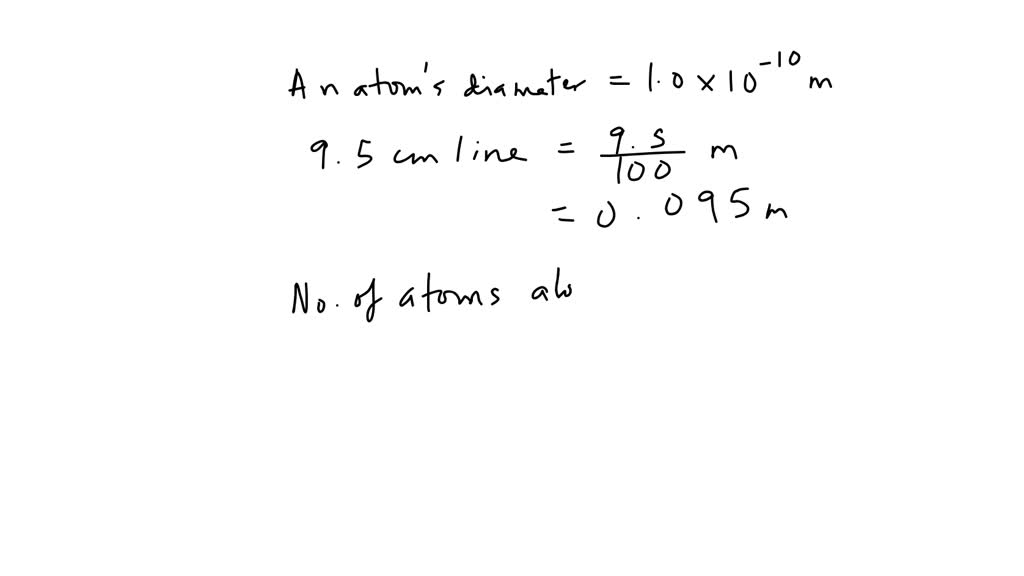 An atom's diameter = 1.0 × 10⁻¹⁰ m
9.5 cm line = 9.5/100 m
= 0.095 m
No. of atoms alo